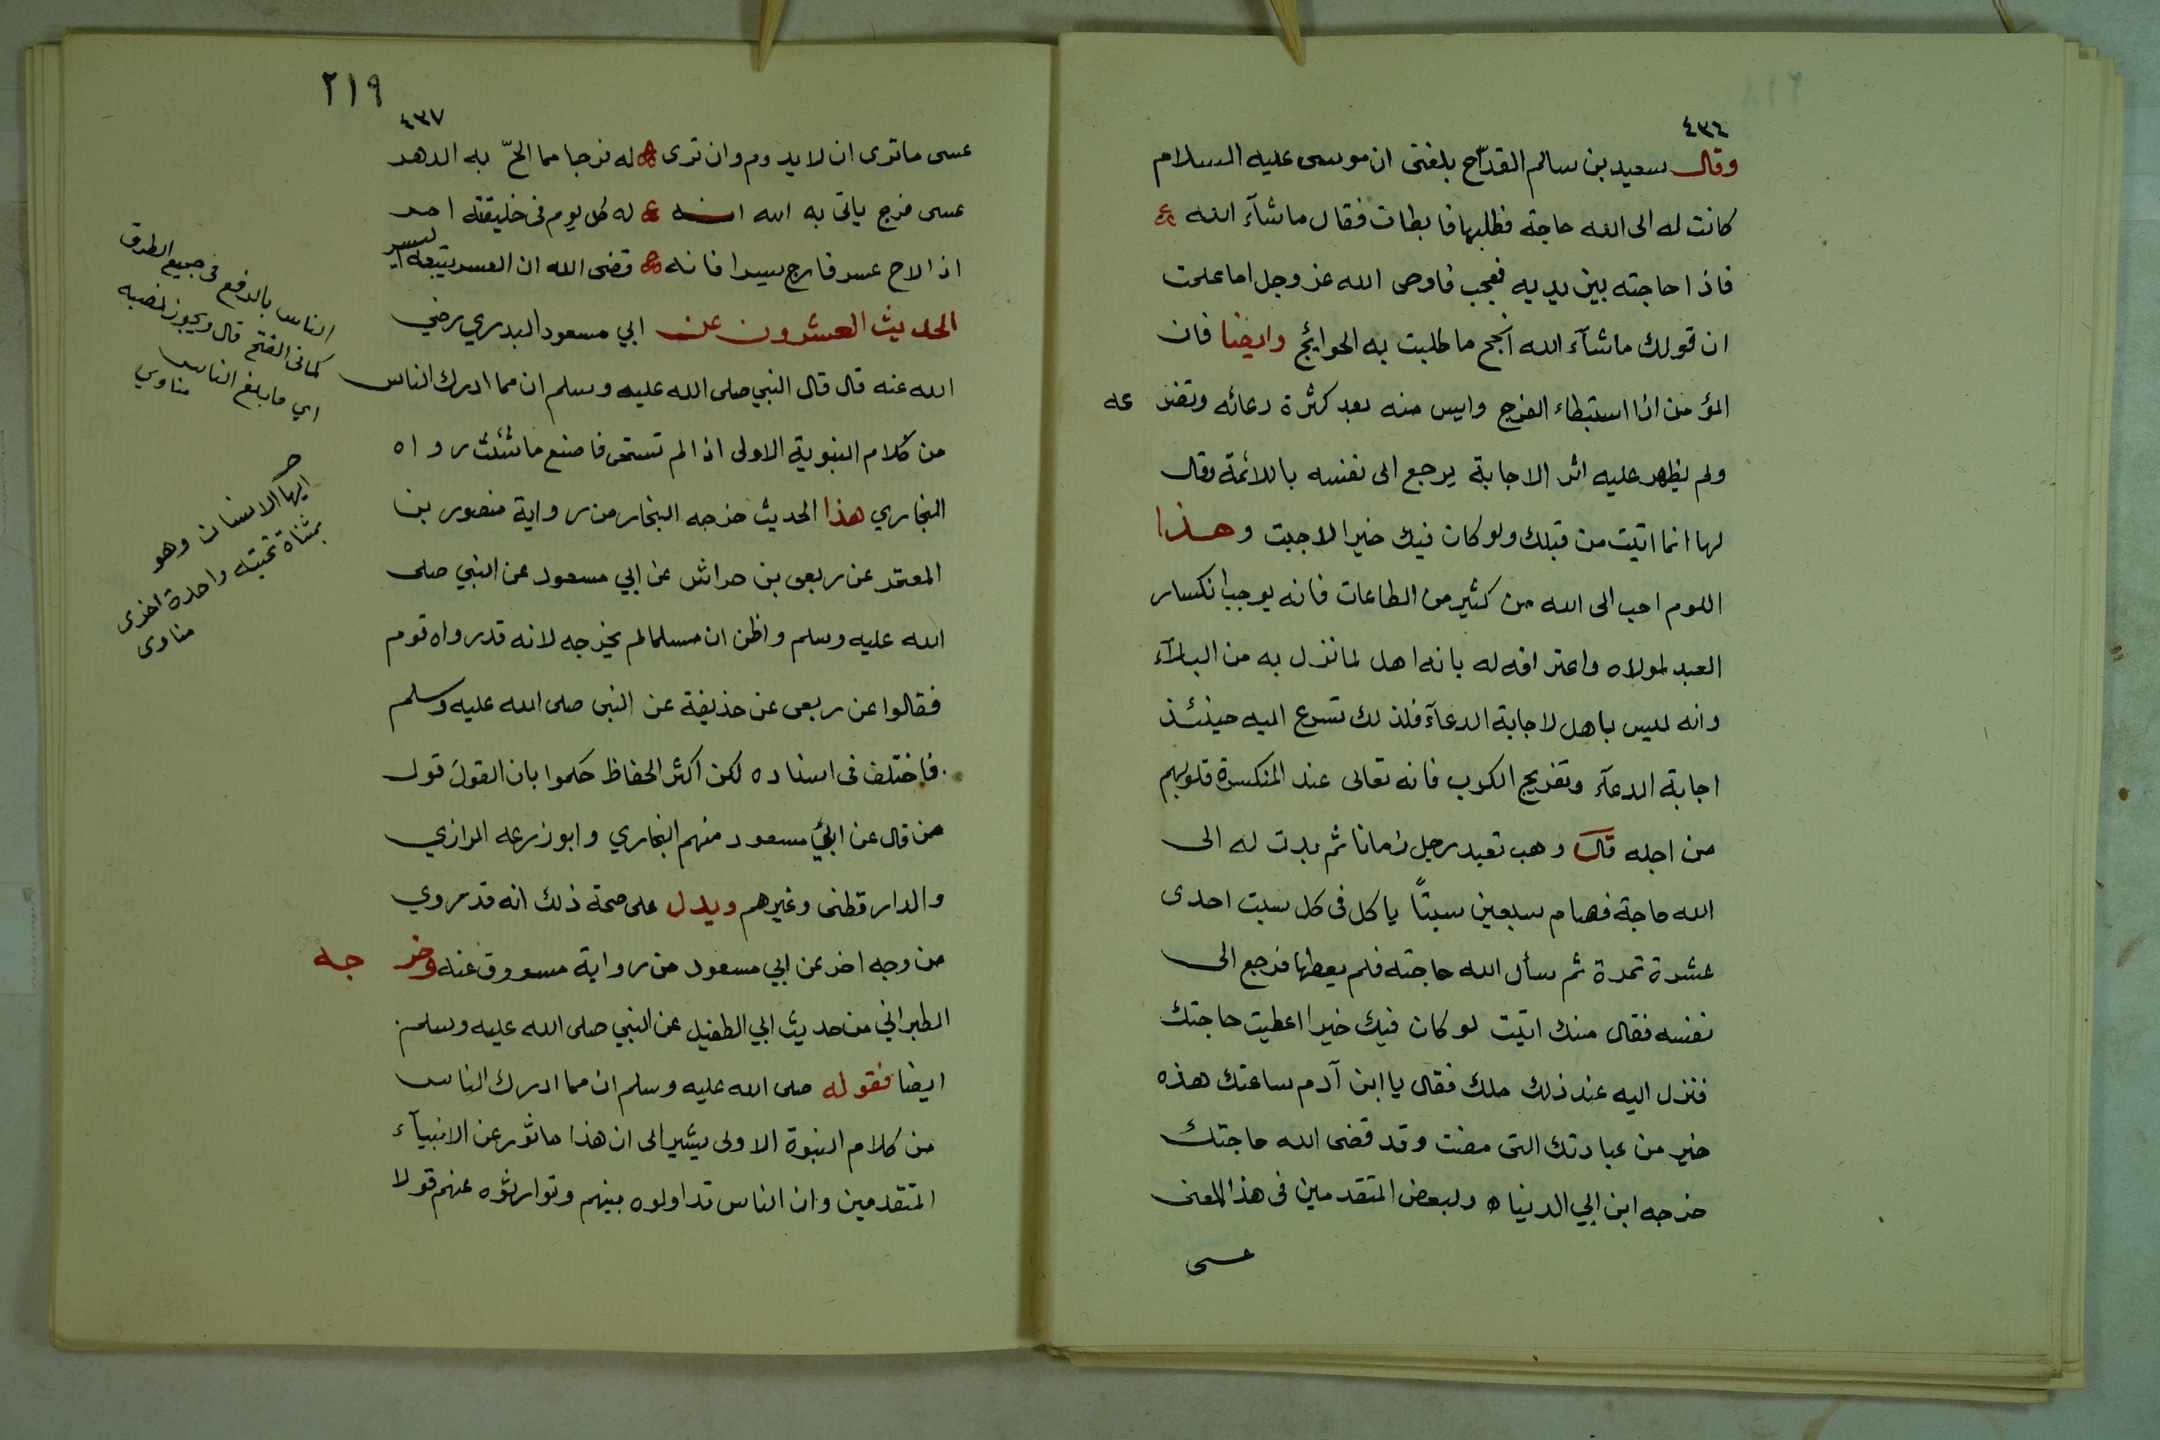 ٤٣٦
وقال سعيد بن سالم القداح بلغنى ان موسى عليه السلام
كانت له الى الله حاجة فطلبها فابطات فقال ماشآء الله
فاذا حاجته بين يديه فعجب فاوحى الله عز وجل اما علمت
ان قولك ماشآء الله انجح ما طلبت به الحوائج وايضا فان
المؤمن اذا استبطاء الفرج وايس منه بعد كثرة دعائه وتضر عه
ولم يظهر عليه اثر الاجابة يرجع الى نفسه باللائمة وقال
لها انما اتيت من قبلك ولو كان فيك خيرا لاجبت وهذا
اللوم احب الى الله من كثير من الطاعات فانه يوجب انكسار
العبد لمولاه واعترافه له بانه اهل لما نزل به من البلآء
وانه ليس باهل لاجابة الدعآء فلذلك تسرع اليه حينئذ
اجابة الدعآء وتفريج الكرب فانه تعالى عند المنكسرة قلوبهم
من اجله قال وهب تعبد رجل زمانا ثم بدت له الى
الله حاجة فصام سبعين سبتًا ياكل فى كل سبت احدى
عشرة تمرة ثم سأل الله حاجته فلم يعطها فرجع الى
نفسه فقال منك اتيت لو كان فيك خيرا اعطيت حاجتك
فنزل اليه عند ذلك ملك فقال يا ابن آدم ساعتك هذه
خير من عبادتك التى مضت وقد قضى الله حاجتك
خرجه ابن ابي الدنيا ه ولبعض المتقدمين فى هذا المعنى
عسى
٢١٩
٤٣٧
عسى ما ترى ان لا يدوم وان ترى له فرجا مما الحّ به الدهر
عسى فرج ياتى به الله انه له كل يوم فى خليقته امر
اذا لاح عسر فارج يسرا فانه قضى الله ان العسر يتبعه اليسر
الحديث العشرون عن ابي مسعود البدري رضي
الله عنه قال قال النبي صلى الله عليه وسلم ان مما ادرك الناس
من كلام النبوية الاولى اذا لم تستحى فاصنع ما شئت رواه
البخاري هذا الحديث خرجه البخار من رواية منصور بن
المعتمر عن ربعى بن حراش عن ابي مسعود عن النبي صلى
الله عليه وسلم واظن ان مسلما لم يخرجه لانه قد رواه قوم
فقالوا عن ربعى عن حذيفة عن النبى صلى الله عليه وسلم
فاختلف فى اسناده لكن اكثر الحفاظ حكموا بان القول قول
من قال عن ابي مسعود منهم البخاري وابو زرعه الرازي
والدار قطنى وغيرهم ويدل على صحة ذلك انه قد روي
من وجه اخر عن ابي مسعود من رواية مسروق عنه وخر جه
الطبراني من حديث ابي الطفيل عن النبي صلى الله عليه وسلم
ايضا فقوله صلى الله عليه وسلم ان مما ادرك الناس
من كلام النبوة الاولى يشير الى ان هذا ماثور عن الانبيآء
المتقدمين وان الناس تداولوه بينهم وتوارثوه عنهم قولا
الناس بالرفع فى جميع الطرق
كمافى الفتح قال ويجوز نصبه
اي مابلغ الناس
مناوي
ايها الانسان وهو
بمثناة تحتيه واحدة اخرى
مناوى